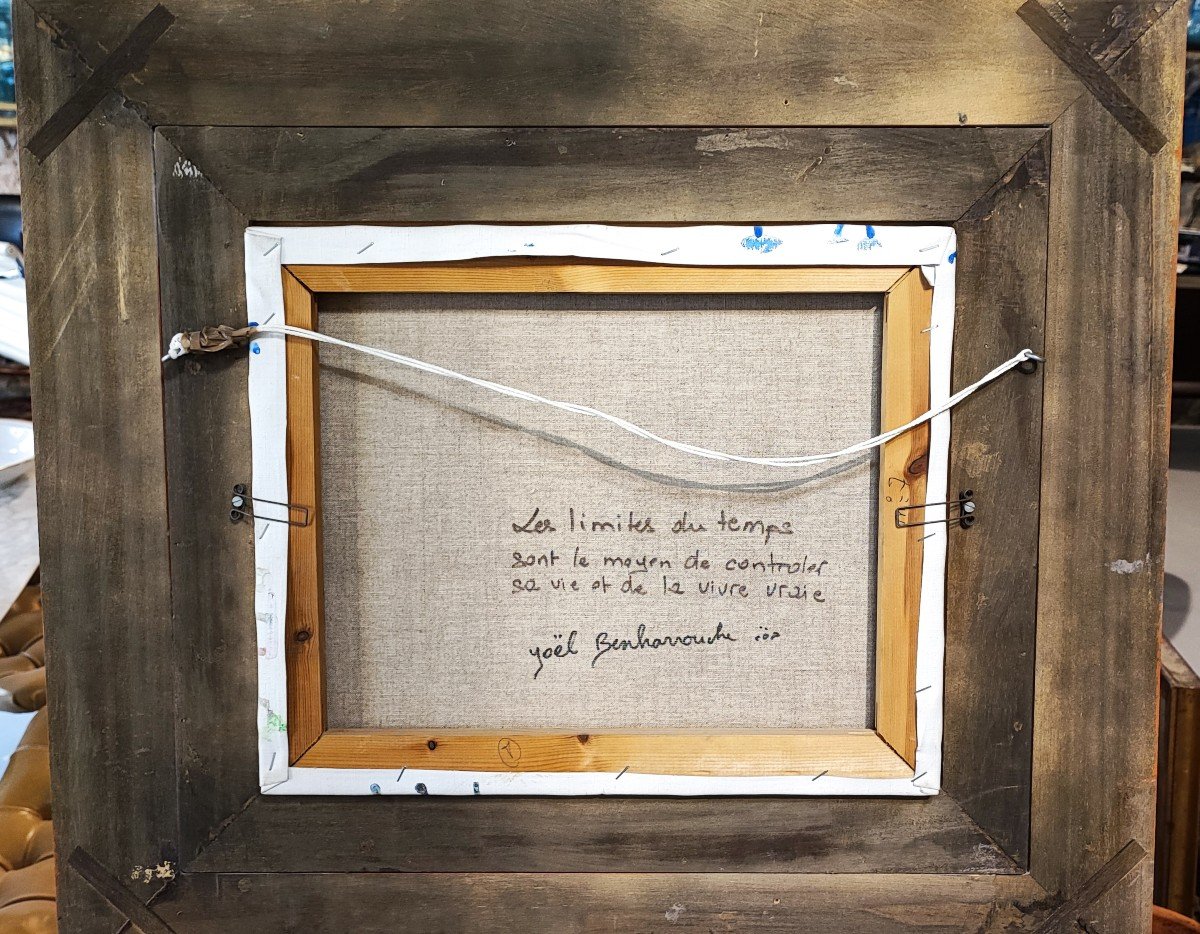 Les limites du temps
sont le moyen de controler
sa vie et de la vivre vraie
yoël Benharrouche